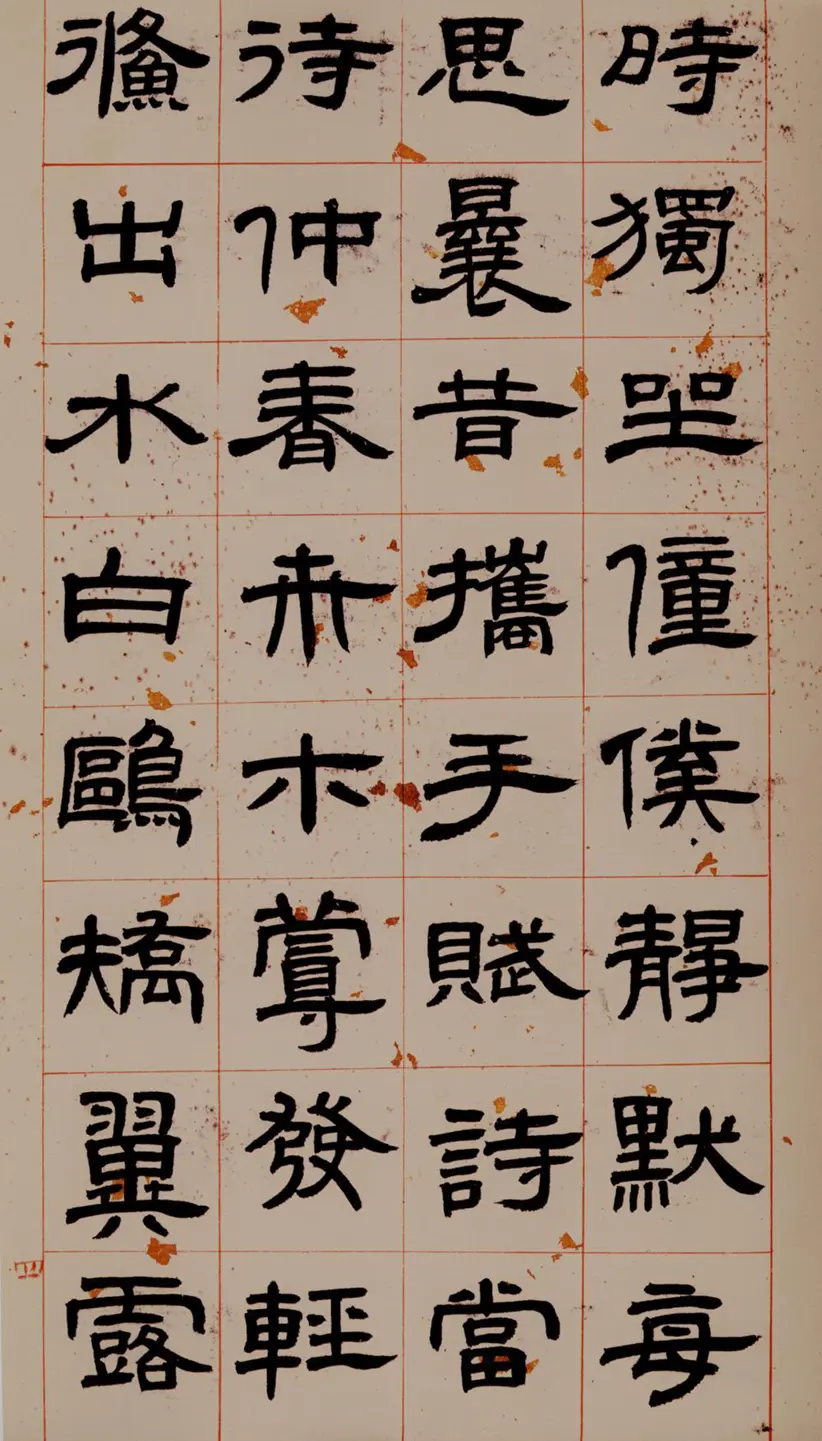 時獨坐僮僕靜默每
思曩昔攜手賦詩當
待仲春卉木蕚發輕
鯈出水白鷗矯翼露
四